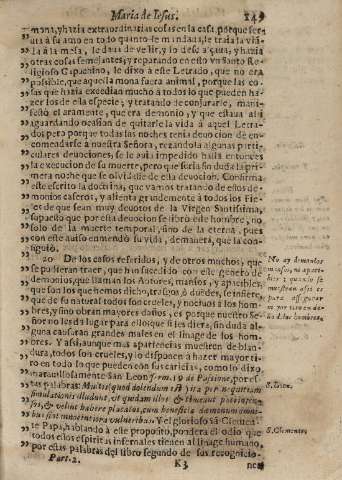 Maria de Iesus. 149
mona, y hazia extraordinarias cosas en la casa, porque ser-
uia à su amo en todo quanto le mandaua, le traia la viã-
da à la mesa, le daua de vestir, y y hazia
otras cosas semejantes; y reparando en esto vn Santo Re-
ligioso Capuchino, le dixo à este Letrado, que no era
possible, que aquella mona fuera animal, porque las co-
sas que hazia excedian mucho à todos lo que pueden ha-
zer los de ella especie; y tratando de conjurarle, mani-
festò claramente, que era demonio, y que estaua alli
aguardando ocasion de quitarle la vida à aquel Letra-
do; pero porque todas las noches tenia deuocion de en-
comendarse à nuestra Señora, rezandola algunas parti-
culares deuociones, se le auia impedido hasta entonces
la execucion de su muerte, pero que seria sin duda la pri-
mera noche que se oluidasse de esta deuocion. Confirma
este escrito la doctrina, que vamos tratando de estos de-
monios caseros, y alienta grandemente à todos los Fie-
les que sean muy deuotos de la Virgen Santissima,
supuesto que por esta deuocion se librò este hombre, no
solo de la muerte temporal, sino de la eterna, pues
con este auiso enmendò su vida, de manera, que la con-
siguiò.
20 De los casos referidos, y de otros muchos, que
se pudieran traer, que han sucedido con este genero de
demonios, que llaman los Autores, mansos, y apacibles,
que son los que hemos dicho, trasgos, ò duẽdes, se infiere,
que de su natural todos son crueles, y nociuos à los hom-
bres, y sino obran mayores daños, es porque nuestro Se-
ñor no les da lugar para ello; que si les diera, sin duda al-
guna causaran grandes males en el linage de los hom-
bres. Y assi, aunque mas apariencias muestren de blan-
dura, todos son crueles, y lo disponen à hazer mayor ti-
ro en todo lo que pueden con sus caricias, como lo dixo
marauillosamente San Leon serm. 19 de Passione, por es-
tas palabras:
Y el glorioso sã Clemẽ-
te Papa, hablando à este proposito, pondera el odio que
todos estos espiritus infernales tienen al linage humano,
por estas palabras del libro segundo de sus recognicio-
Part. 2. K3 nes
S. Leon.
S. Clemente